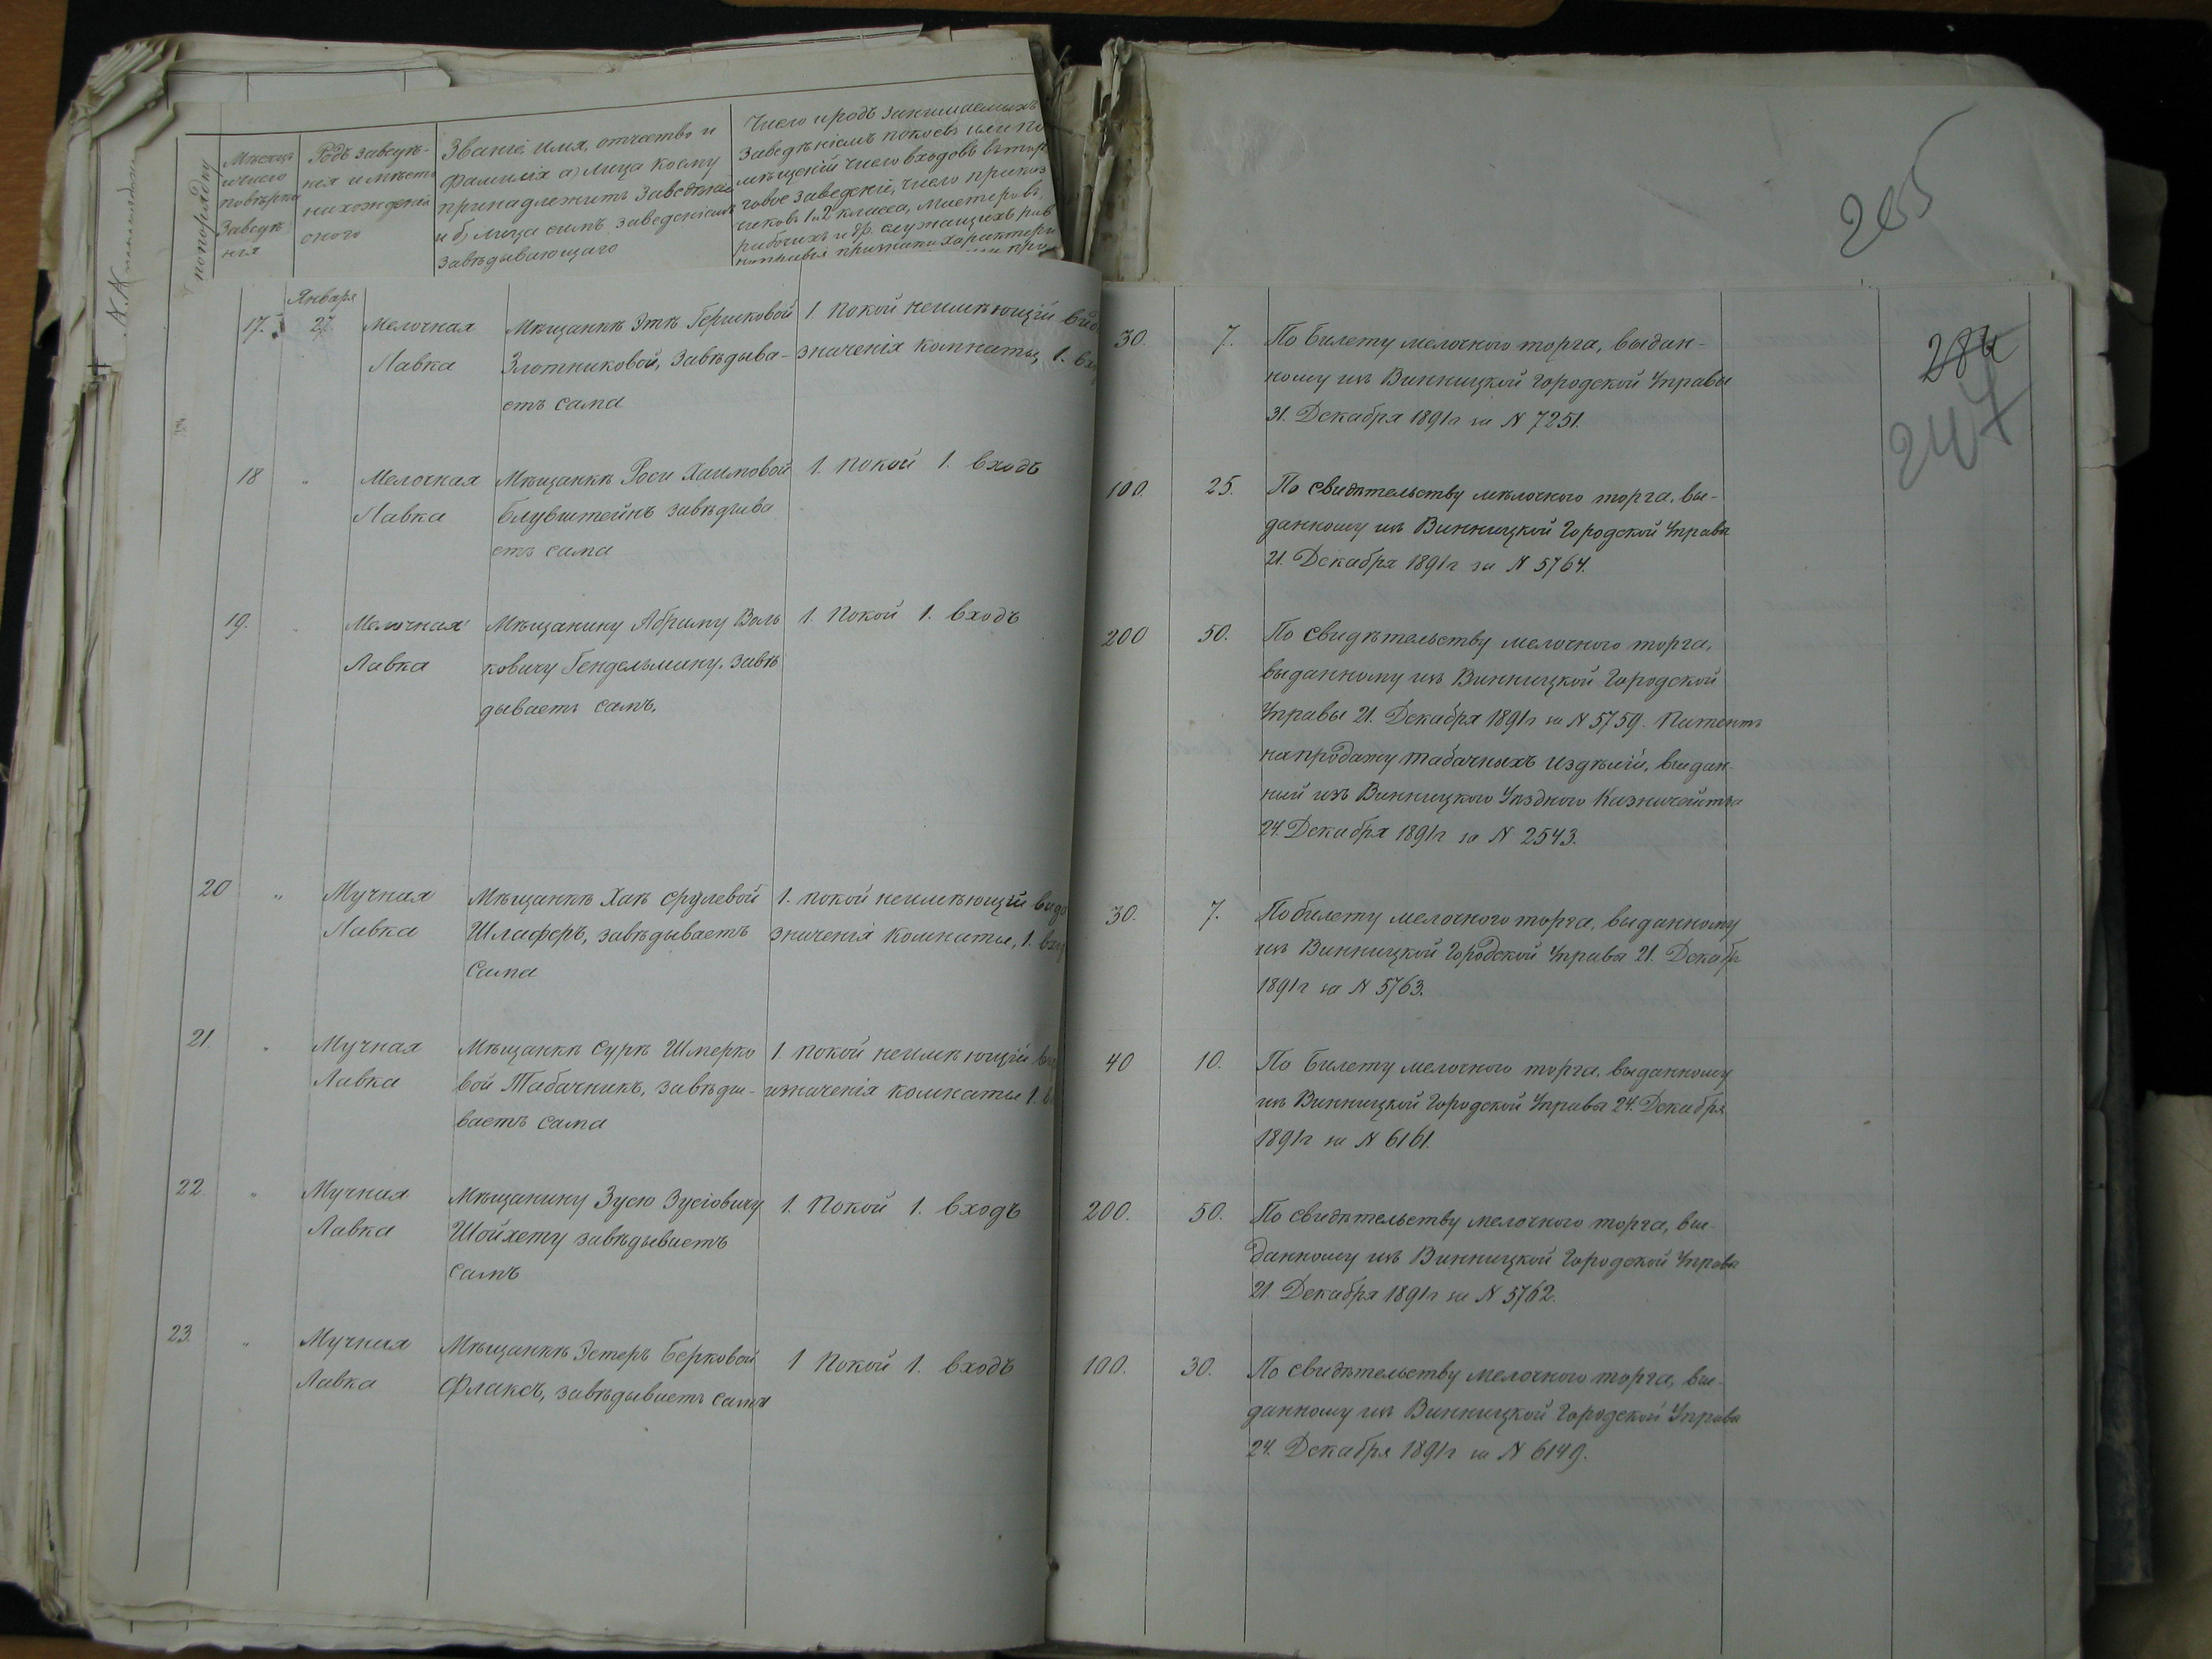 попорядку
Мѣсяцъ
и число
повѣрки
Заведе
нія
Родъ заведе-
нія и место
нахожденія
оного
Званіе, имя, отчество и
фамилія а) лица коему
принадлежитъ Заведеніе
и б) лица симъ заведеніемъ
завѣдывающаго
Число и родъ занимаемыхъ
заведеніемъ покоевъ или по
мѣщеній число входовъ въ тор
говое заведеніе, число приказ
чиковъ 1 и 2 класса, мастеровъ,
рабочихъ и др. служащихъ рав
265
Января
17. 27. Мелочная
Лавка
Мѣщанкѣ Эткѣ Гершковой
Злотниковой, Завѣдыва-
етъ сама
1. покой неимѣющій видо
значенія комнаты, 1. вхо
30. 7. По Билету мелочного торга, выдан-
ному изъ Винницкой Городской Управы
31. Декабря 1891 г за N 7251.
284
247
18 " Мелочная
Лавка
Мѣщанкѣ Роси Хаимовой
Блувштейнъ завѣдыва
етъ сама
1. покой 1. входъ
100. 25. По свидѣтельству мѣлочного торга, вы-
данному изъ Винницкой Городской Управы
21. Декабря 1891 г за N 5764.
19. " Мелочная
Лавка
Мѣщанину Абраму Воль
ковичу Гендельману, завѣ
дываетъ самъ,
1. Покой 1. входъ
200 50. По свидѣтельству мелочного торга,
выданному изъ Винницкой Городской
Управы 21. Декабря 1891 г за N 5759. Патентъ
на продажу табачныхъ издѣлій, выдан-
ный изъ Винницкого Уѣздного Казначейства
24. Декабря 1891 г за N 2543.
20 " Мучная
Лавка
Мѣщанкѣ Хаѣ Срулевой
Шлаферъ, завѣдываетъ
Сама
1. покой неимѣющій видо
значенія комнаты, 1. вход
30. 7. По билету мелочного торга, выданному
изъ Винницкой Городской Управы 21. Декабр
1891 г за N 5763.
21. " Мучная
Лавка
Мѣщанкѣ Сурѣ Шмерко
вой Табачникъ, завѣды-
ваетъ сама
1. покой неимѣющій ви
значенія комнаты 1. в
40 10. По Билету мелочного торга, выданному
изъ Винницкой Городской Управы 24. Декабря
1891 г за N 6161.
22. " Мучная
Лавка
Мѣщанину Зусю Зусіовичу
Шойхету завѣдываетъ
Самъ
1. Покой 1. входъ
200. 50. По свидѣтельству мелочного торга, вы-
данному изъ Винницкой Городской Управы
21. Декабря 1891 г за N 5762.
23. " Мучная
Лавка
Мѣщанкѣ Эстеръ Берковой
Флаксъ, завѣдываетъ сама
1 Покой 1. входъ
100. 30. По свидѣтельству мелочного торга, вы-
данному изъ Винницкой Городской Управы
24. Декабря 1891 г за N 6149.